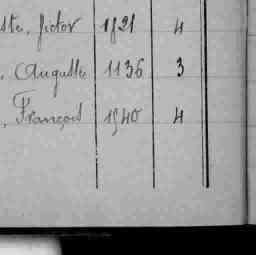 ste, Victor 1921 4
, Auguste 1136 3
, François 1940 4